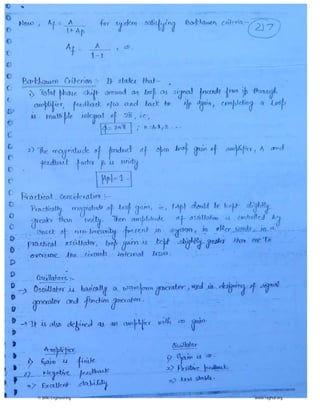 Now, Af = A / 1+Aβ for system satisfying Barkhausen criteria :-
217
Af = A / 1-1 = ∞.
Barkhausen Criterion :- It states that-
1) Total phase shift around a loop as signal proceeds from i/p through
amplifier, feedback n/w and back to i/p again, completing a loop
is multiple integral of 2π, ie,
φ = 2nπ ; n = 0,1,2...
2) The magnitude of product of open loop gain of amplifier, A and
feedback factor β is unity
|Aβ| = 1.
Practical Consideration :-
Practically magnitude of loop gain, ie, |Aβ| should be kept slightly
greater than unity. Then amplitude of oscillation is controlled by
onset of non-linearity present in system, in other words, in a
practical oscillator, loop gain is kept slightly greater than one to
overcome the circuit's internal losses.
Oscillators :-
→ Oscillator is basically a waveform generator, used in designing of signal
generator and function generator.
→ It is also defined as an amplifier with ∞ gain.
Amplifier Oscillator
1) Gain is finite 1) Gain is ∞.
2) Negative feedback 2) Positive feedback.
3) Excellent stability 3) Less stable.